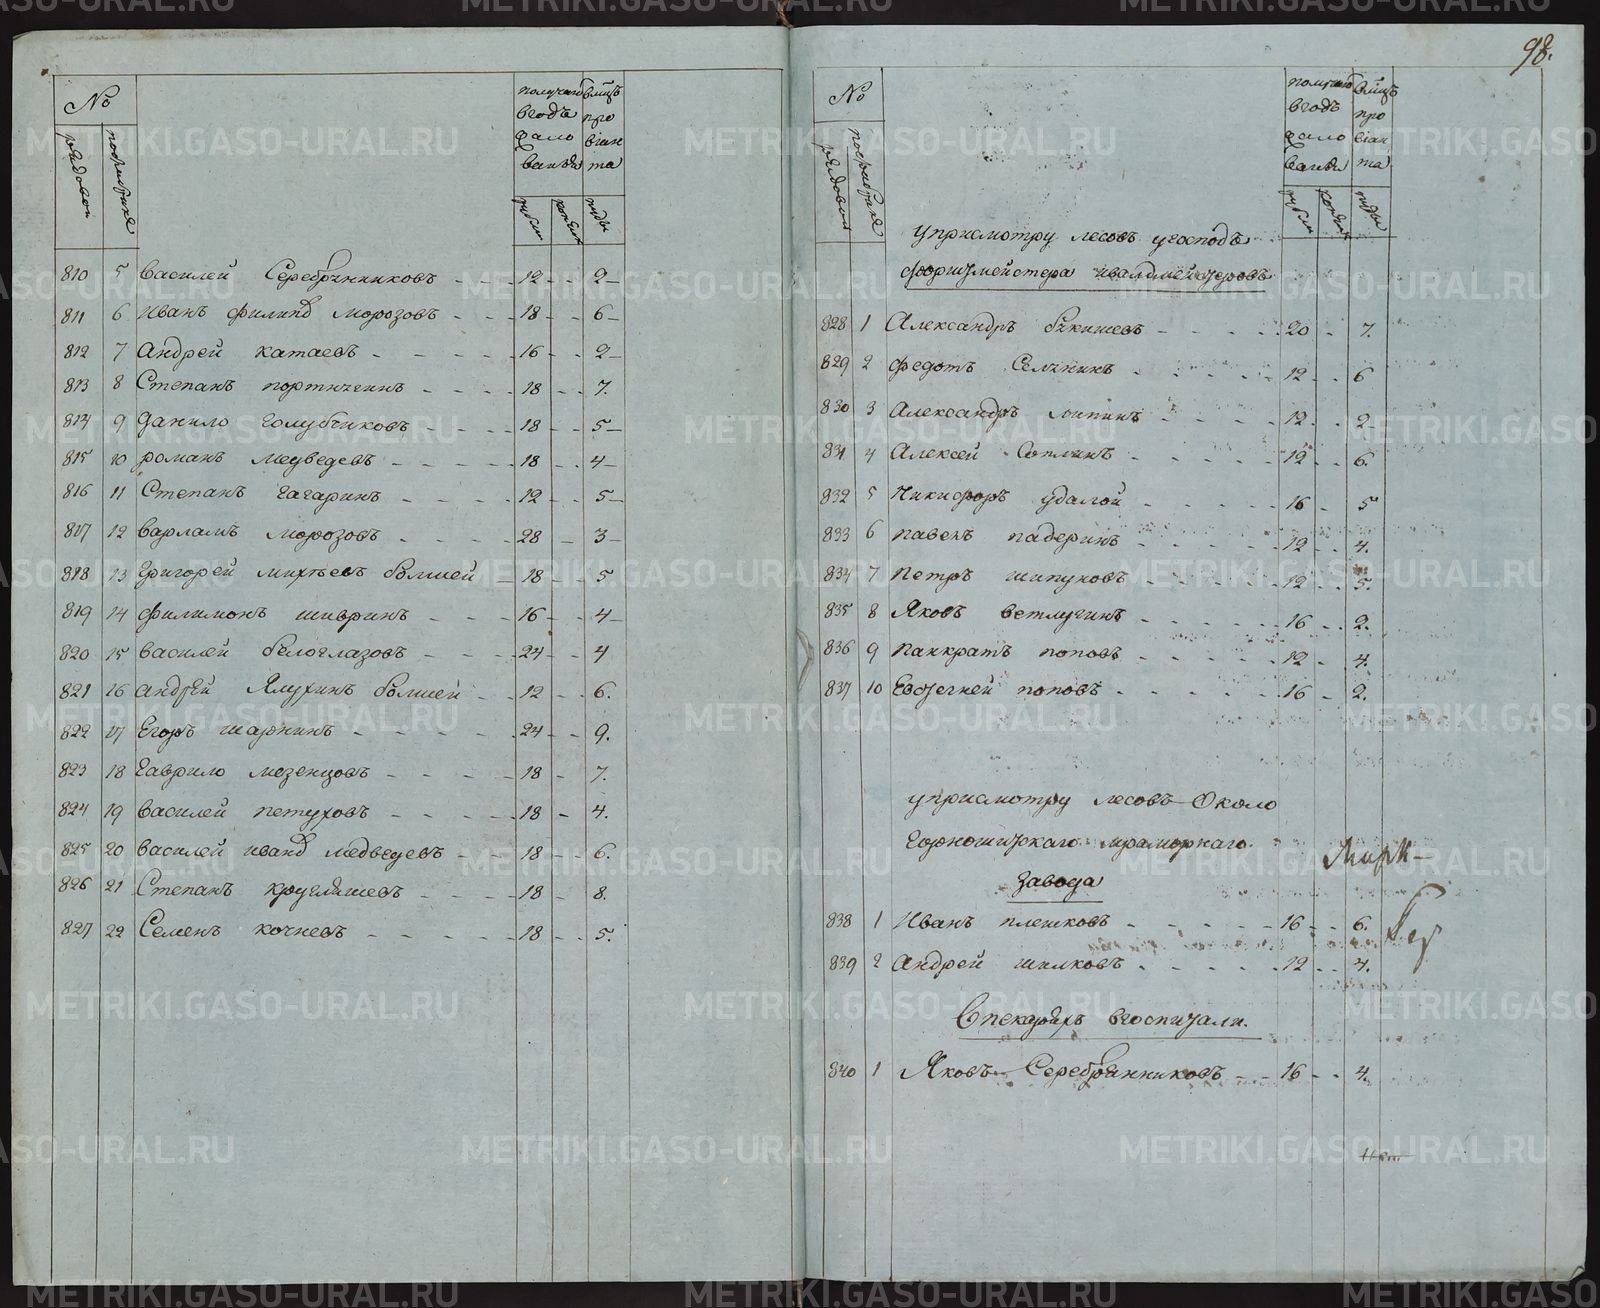 98.
№
рядовои
получаю
вгодъ
жало
ванья
вмцъ
про
віан
та
рубли
копѣи
пуды
810 5 Василей Серебрениковъ 12 2
811 6 Иванъ филипв морозовъ 18 6
812 7 Андрей катаевъ 16 2
813 8 Степанъ 18 7.
814 9 Данило голубчиковъ 18 5
815 10 романъ медведевъ 18 4
816 11 Степанъ гагаринъ 12 5
817 12 Варламъ морозовъ 28 3
818 13 Григорей михѣевъ болшей 18 5
819 14 филимонъ шивринъ 16 4
820 15 Василей бѣлоглазовъ 24 4
821 16 Андрей Ялухинъ болшей 12 6.
822 17 Егоръ 24 9.
823 18 Гаврило мезенцовъ 18 7.
824 19 Василей петуховъ 18 4.
825 20 Василей иванв медведевъ 18 6.
826 21 Степанъ 18 8.
827 22 Семенъ кочневъ 18 5.
№
рядовои
получаю
вгодъ
жало
ванья
вмцъ
про
віан
та
рубли
копѣи
пуды
уприсмотру лесовъ угосподъ
форштмейстера ивалдмейстеровъ
828 1 Александръ 20 7.
829 2 федотъ Селянинъ 12 6
830 3 Александръ липинъ 12 2
831 4 Алексей 12 6.
832 5 Никифоръ удалой 16 5
833 6 павелъ падеринъ 12 4.
834 7 петръ шипуновъ 12 5.
835 8 Яковъ ветлугинъ 16 2.
836 9 панкратъ поповъ 12 4.
837 10 Евстегней поповъ 16 2.
уприсмотру лесовъ Около
Горношитскаго мраморнаго
завода
838 1 Иванъ плешковъ 16 6.
839 2 Андрей шилковъ 12 4.
Спекаряхъ вгоспитали.
840 1 Яковъ Серебрянниковъ 16 4.
METRIKI.GASO-URAL.RU